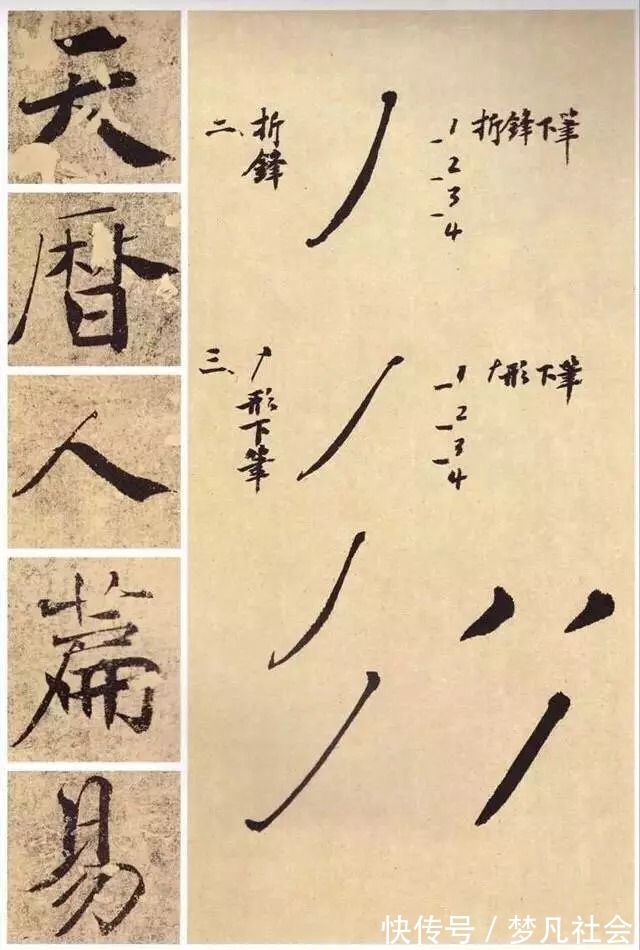 天
暦
人
篇
易
二、折鋒
1
2
3
4
折鋒下筆
三、形下筆
1
2
3
4
形下筆
快传号 / 梦凡社会